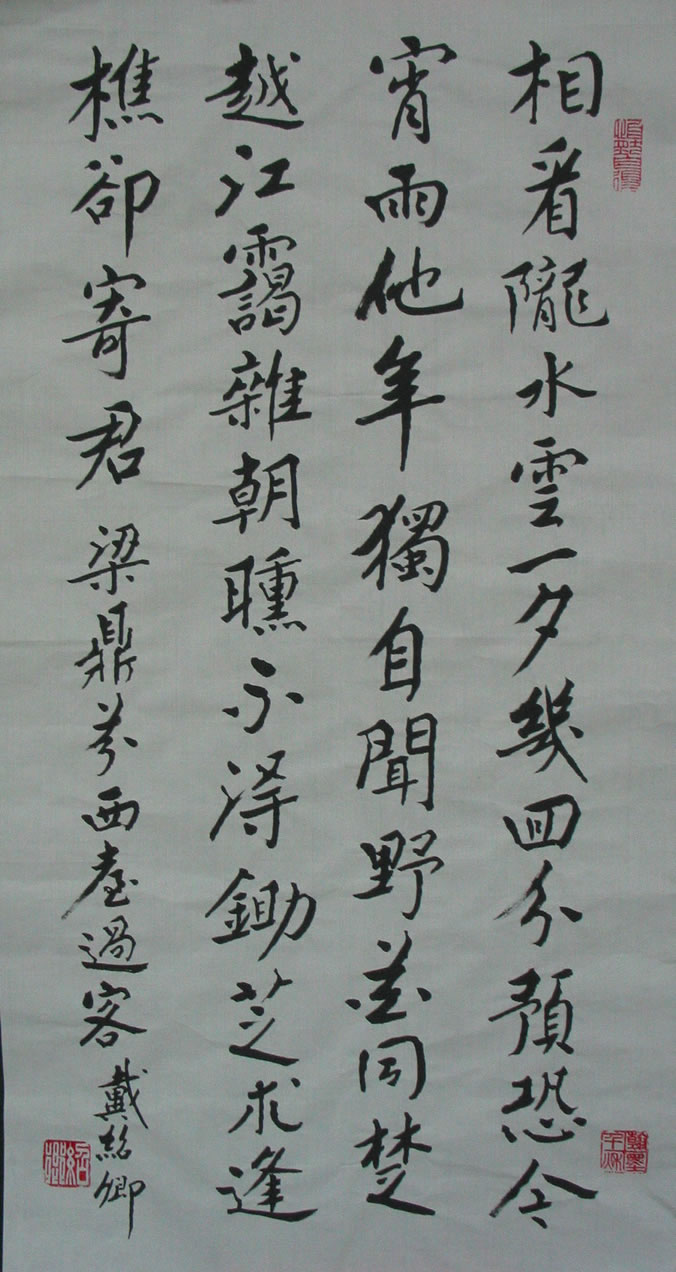 相看隴水雲一夕幾回分預恐今
宵雨他年獨自聞野花同楚
越江靄雜朝曛不得鋤芝朮逢
樵卻寄君 梁鼎芬西臺過客 戴紹卿